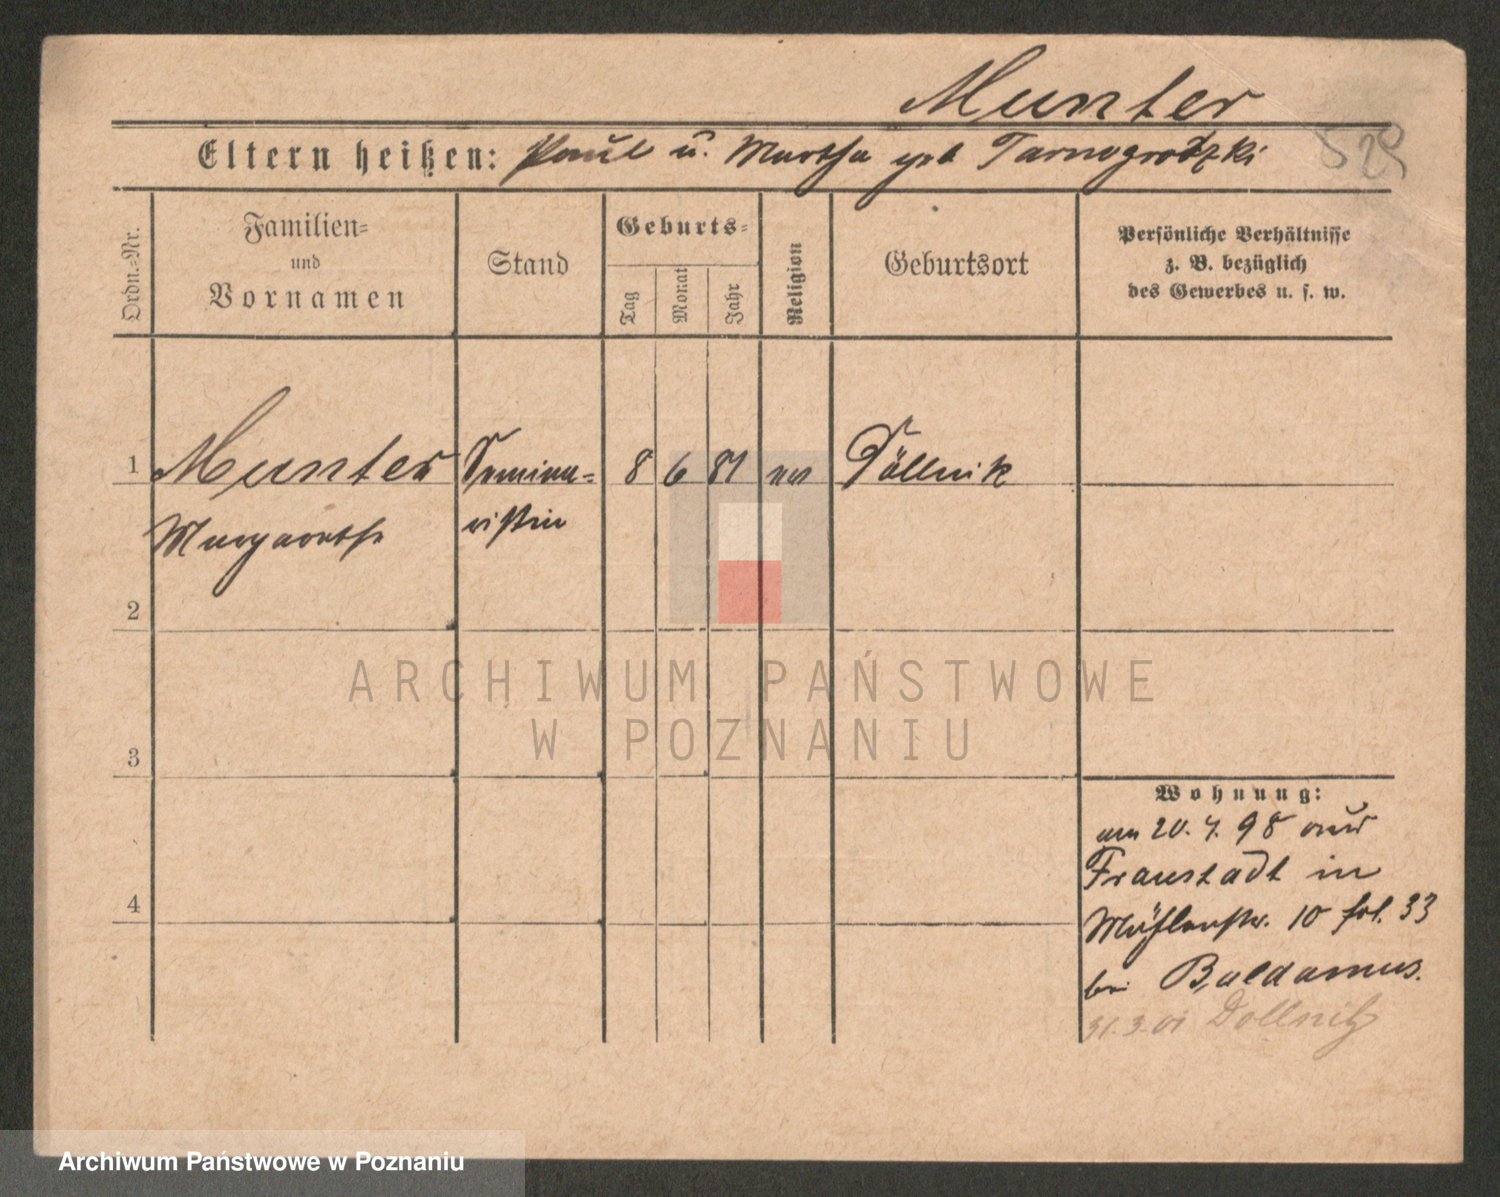 Munter
Eltern heißen: Paul u. Martha geb Tarnogrodzki
529
Ordn.-Nr.
Familien-
und
Vornamen
Stand
Geburts-
Tag
Monat
Jahr
Religion
Geburtsort
Persönliche Verhältnisse
z. B. bezüglich
des Gewerbes u. s. w.
1 Munter Semina- 8 6 81 ev Döllnik
Margarethe ristin
2
3
4
ARCHIWUM PAŃSTWOWE
W POZNANIU
Wohnung:
am 20. 4. 98 aus
Fraustadt in
Mühlenstr. 10 fol. 33
bei Baldamus.
31.3.01 Dollnik
Archiwum Państwowe w Poznaniu